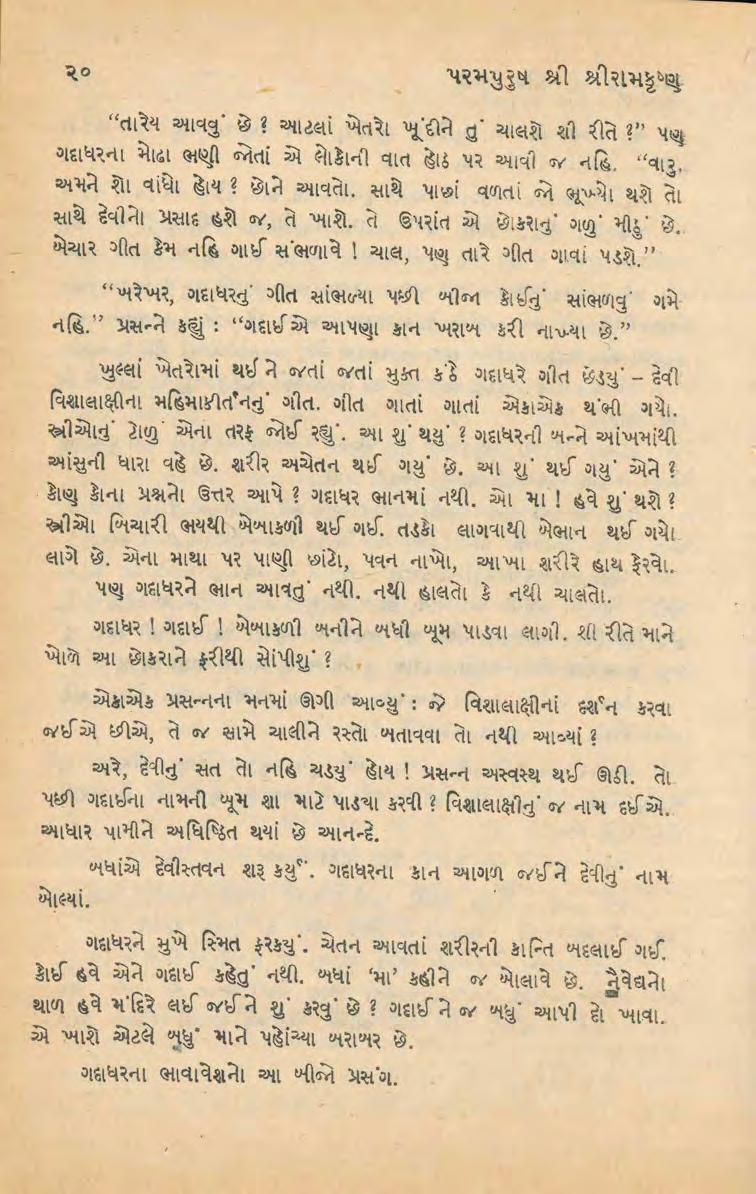 ૨૦
પરમપુરુષ શ્રી શ્રીરામકૃષ્ણ
“તારેય આવવું છે? આટલાં ખેતરો ખૂંદીને તું ચાલશે શી રીતે?” પણ
ગદાધરના મોઢા ભણી જોતાં એ લોકોની વાત હોઠ પર આવી જ નહિ. “વારુ,
અમને શો વાંધો હોય? છોને આવતો. સાથે પાછાં વળતાં જો ભૂખ્યો થશે તો
સાથે દેવીનો પ્રસાદ હશે જ, તે ખાશે. તે ઉપરાંત એ છોકરાનું ગળું મીઠું છે.
બેચાર ગીત કેમ નહિ ગાઈ સંભળાવે! ચાલ, પણ તારે ગીત ગાવાં પડશે.”
“ખરેખર, ગદાધરનું ગીત સાંભળ્યા પછી બીજા કોઈનું સાંભળવું ગમે
નહિ.” પ્રસન્ને કહ્યું : “ગદાઈએ આપણા કાન ખરાબ કરી નાખ્યા છે.”
ખુલ્લાં ખેતરોમાં થઈને જતાં જતાં મુક્ત કંઠે ગદાધરે ગીત છેડ્યું – દેવી
વિશાલાક્ષીના મહિમાકીર્તનનું ગીત. ગીત ગાતાં ગાતાં એકાએક થંભી ગયો.
સ્ત્રીઓનું ટોળું એના તરફ જોઈ રહ્યું. આ શું થયું? ગદાધરની બન્ને આંખમાંથી
આંસુની ધારા વહે છે. શરીર અચેતન થઈ ગયું છે. આ શું થઈ ગયું એને?
કોણ કોના પ્રશ્નનો ઉત્તર આપે? ગદાધર ભાનમાં નથી. ઓ મા! હવે શું થશે?
સ્ત્રીઓ બિચારી ભયથી બેબાકળી થઈ ગઈ. તડકો લાગવાથી બેભાન થઈ ગયો
લાગે છે. એના માથા પર પાણી છાંટો, પવન નાખો, આખા શરીરે હાથ ફેરવો.
પણ ગદાધરને ભાન આવતું નથી. નથી હાલતો કે નથી ચાલતો.
ગદાધર! ગદાઈ! બેબાકળી બનીને બધી બૂમ પાડવા લાગી. શી રીતે માને
ખોળે આ છોકરાને ફરીથી સોંપીશું?
એકાએક પ્રસન્નના મનમાં ઊગી આવ્યું: જે વિશાલાક્ષીનાં દર્શન કરવા
જઈએ છીએ, તે જ સામે ચાલીને રસ્તો બતાવવા તો નથી આવ્યાં?
અરે, દેવીનું સત તો નહિ ચડયું હોય! પ્રસન્ન અસ્વસ્થ થઈ ઊઠી. તો
પછી ગદાઈના નામની બૂમ શા માટે પાડ્યા કરવી? વિશાલાક્ષીનું જ નામ દઈએ.
આધાર પામીને અધિષ્ઠિત થયાં છે આનન્દે.
બધાંએ દેવીસ્તવન શરૂ કર્યું. ગદાધરના કાન આગળ જઈને દેવીનું નામ
બોલ્યાં.
ગદાધરને મુખે સ્મિત ફરક્યું. ચેતન આવતાં શરીરની કાન્તિ બદલાઈ ગઈ.
કોઈ હવે એને ગદાઈ કહેતું નથી. બધાં ‘મા’ કહીને જ બોલાવે છે. નૈવેદ્યનો
થાળ હવે મંદિરે લઈ જઈને શું કરવું છે? ગદાઈને જ બધું આપી દો ખાવા.
એ ખાશે એટલે બધું માને પહોંચ્યા બરાબર છે.
ગદાધરના ભાવાવેશનો આ બીજો પ્રસંગ.